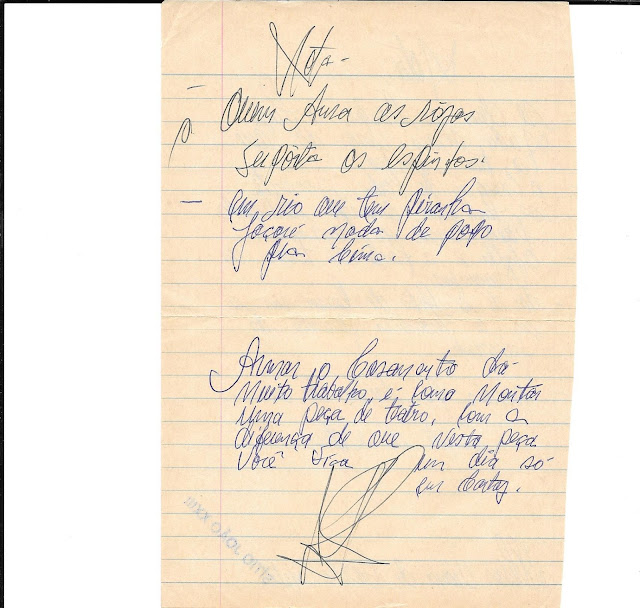 Nota-
- Quem Ama as rosas
suporta os espinhos.
- em rio que tem piranha
Jacaré nada de papo
pra cima.
Armar o Casamento dá
muito trabalho, é como montar
uma peça de teatro, com a
diferença de que nesta peça
você fica um dia só
em Cartaz.
SITIO JOÃO XXIII